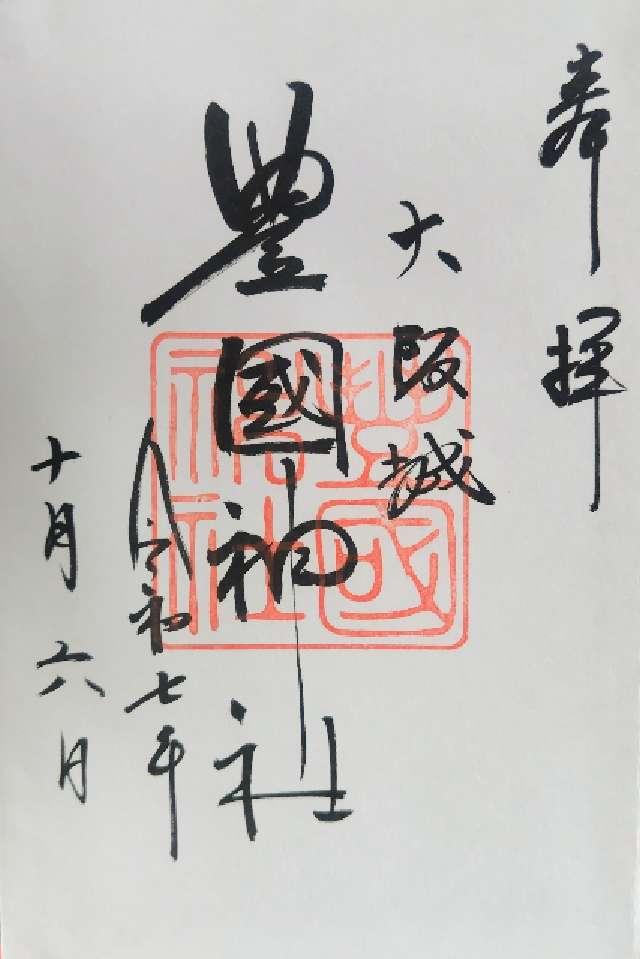 奉拝
大阪城
豊國神社
令和七年
十月六日
豊國神社